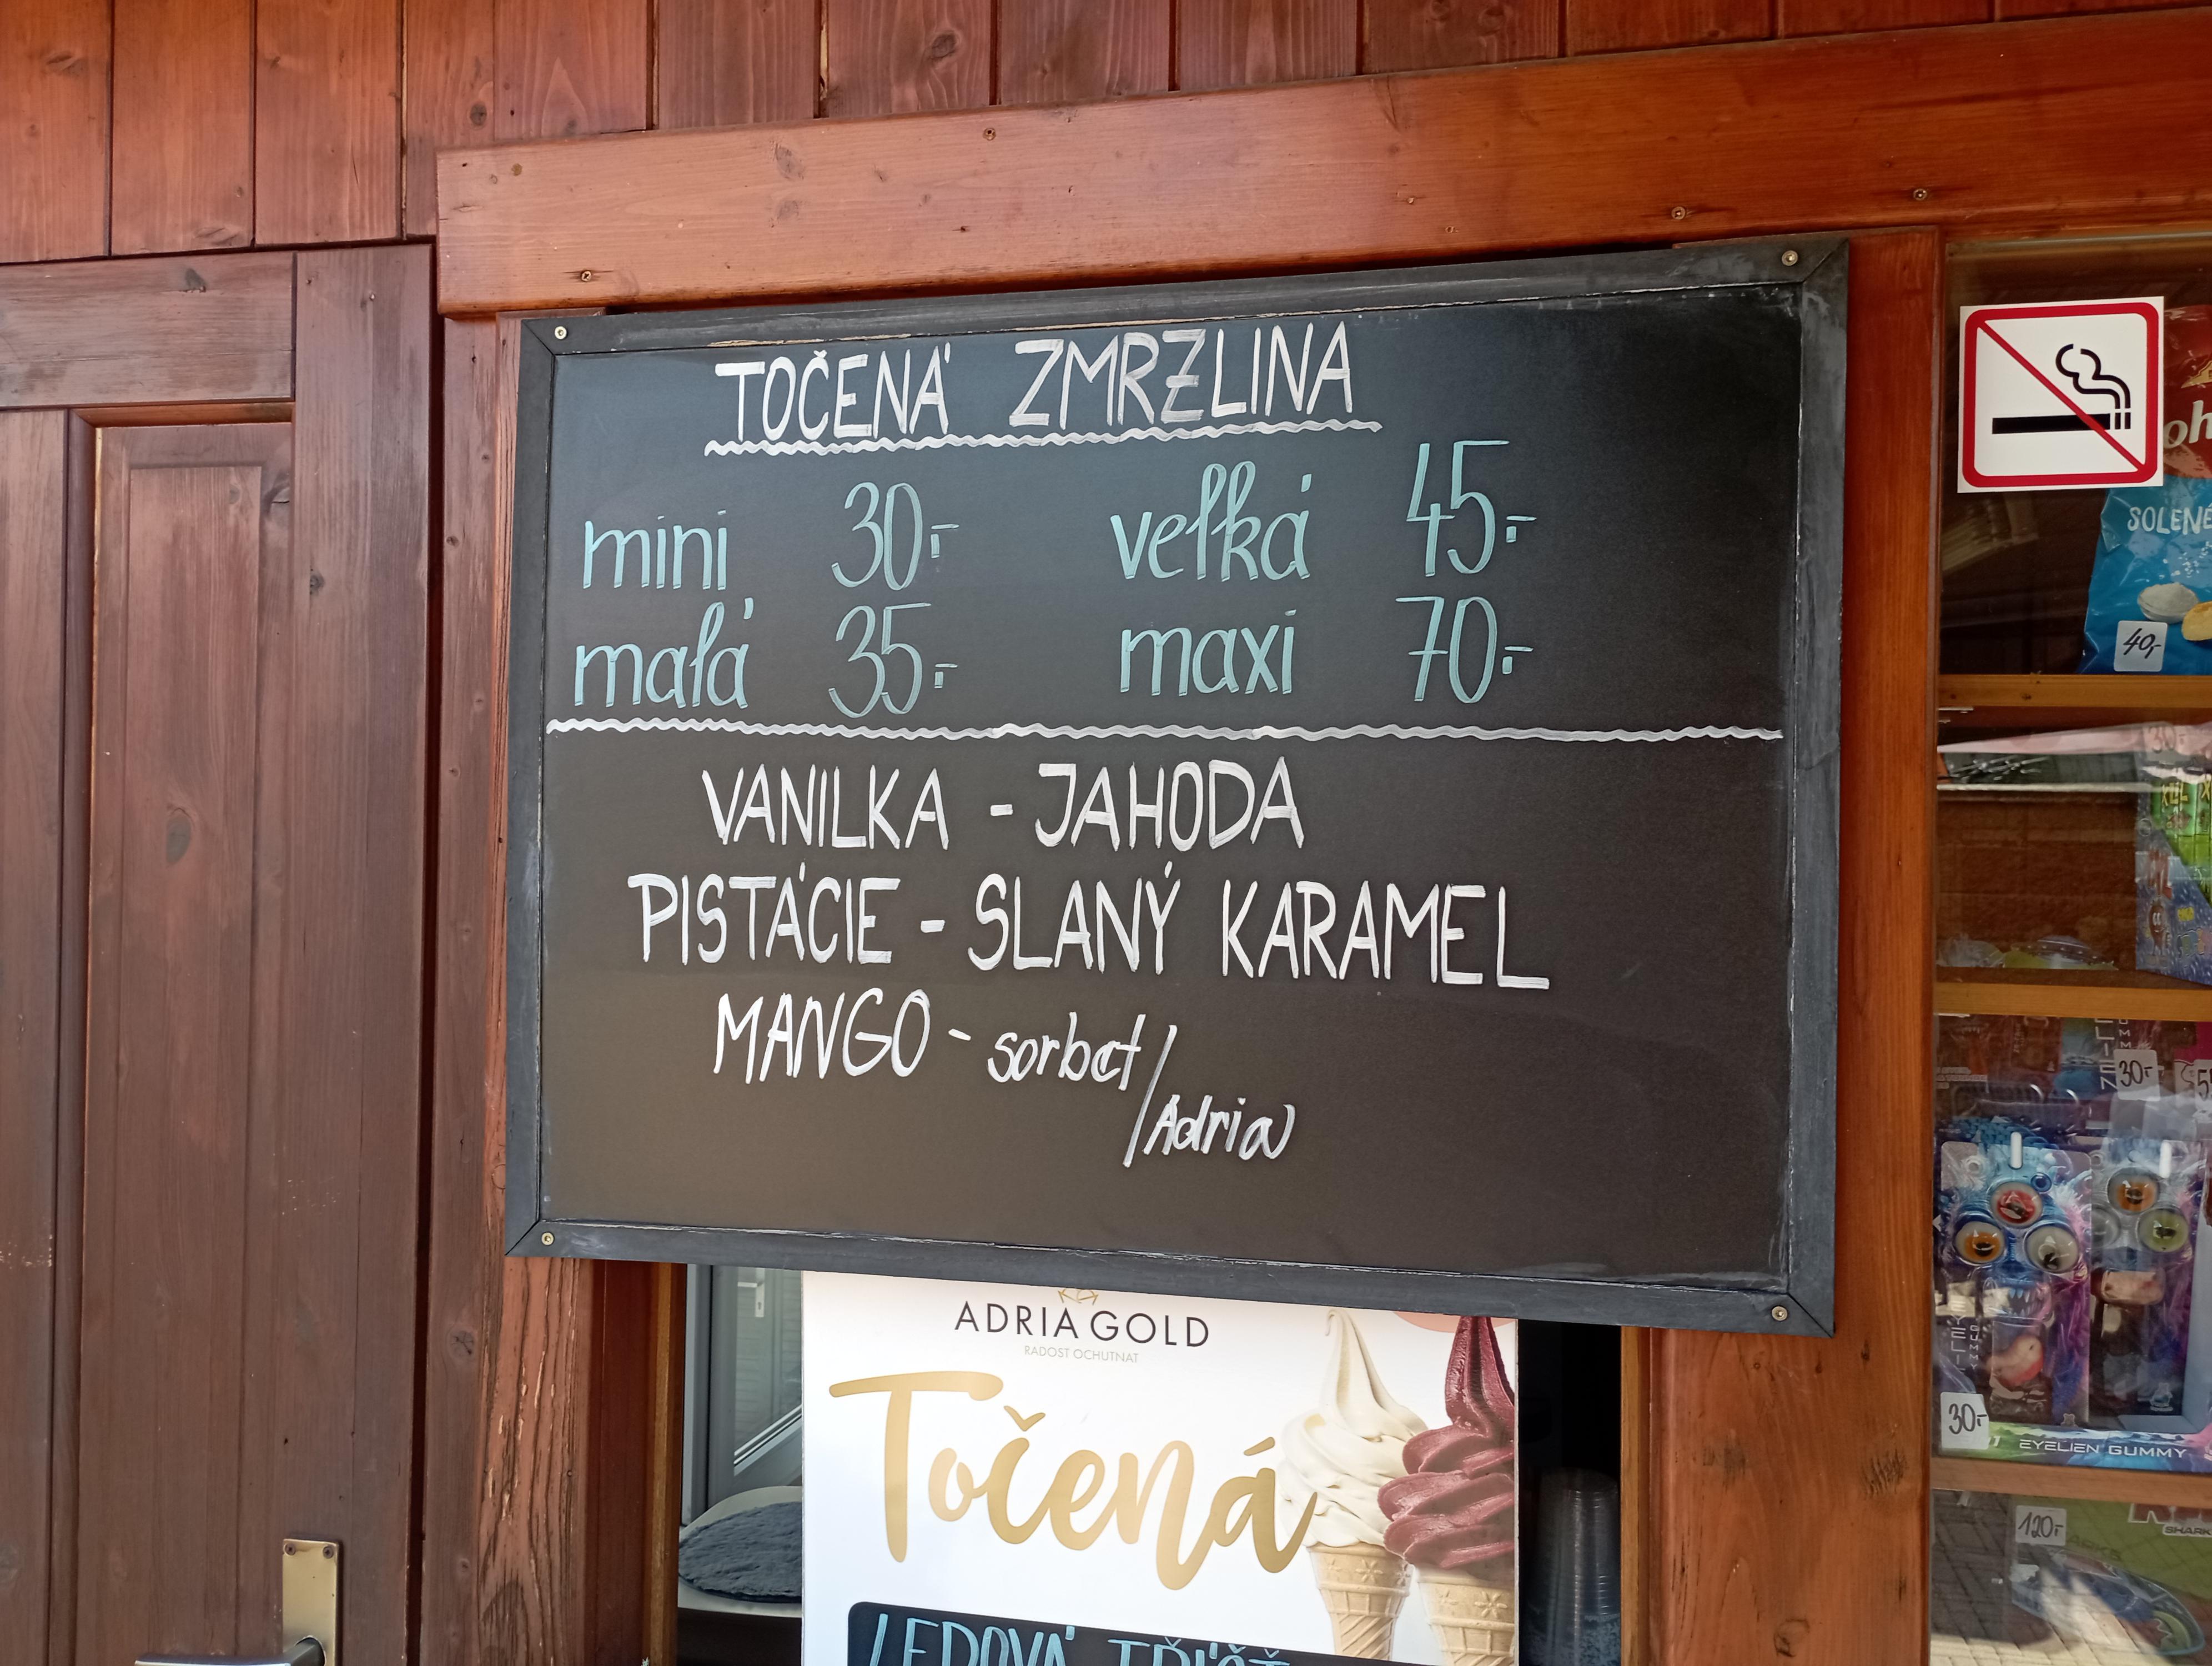 TOČENÁ ZMRZLINA
mini 30,- velká 45,-
malá 35,- maxi 70,-
VANILKA - JAHODA
PISTÁCIE - SLANÝ KARAMEL
MANGO - sorbet/Adria
ADRIA GOLD
RADOST OCHUTNAT
Točená
LEDOVÁ TŘÍŠŤ
SOLENÉ
40,-
30,-
30,-
EYELIEN GUMMY
120,-